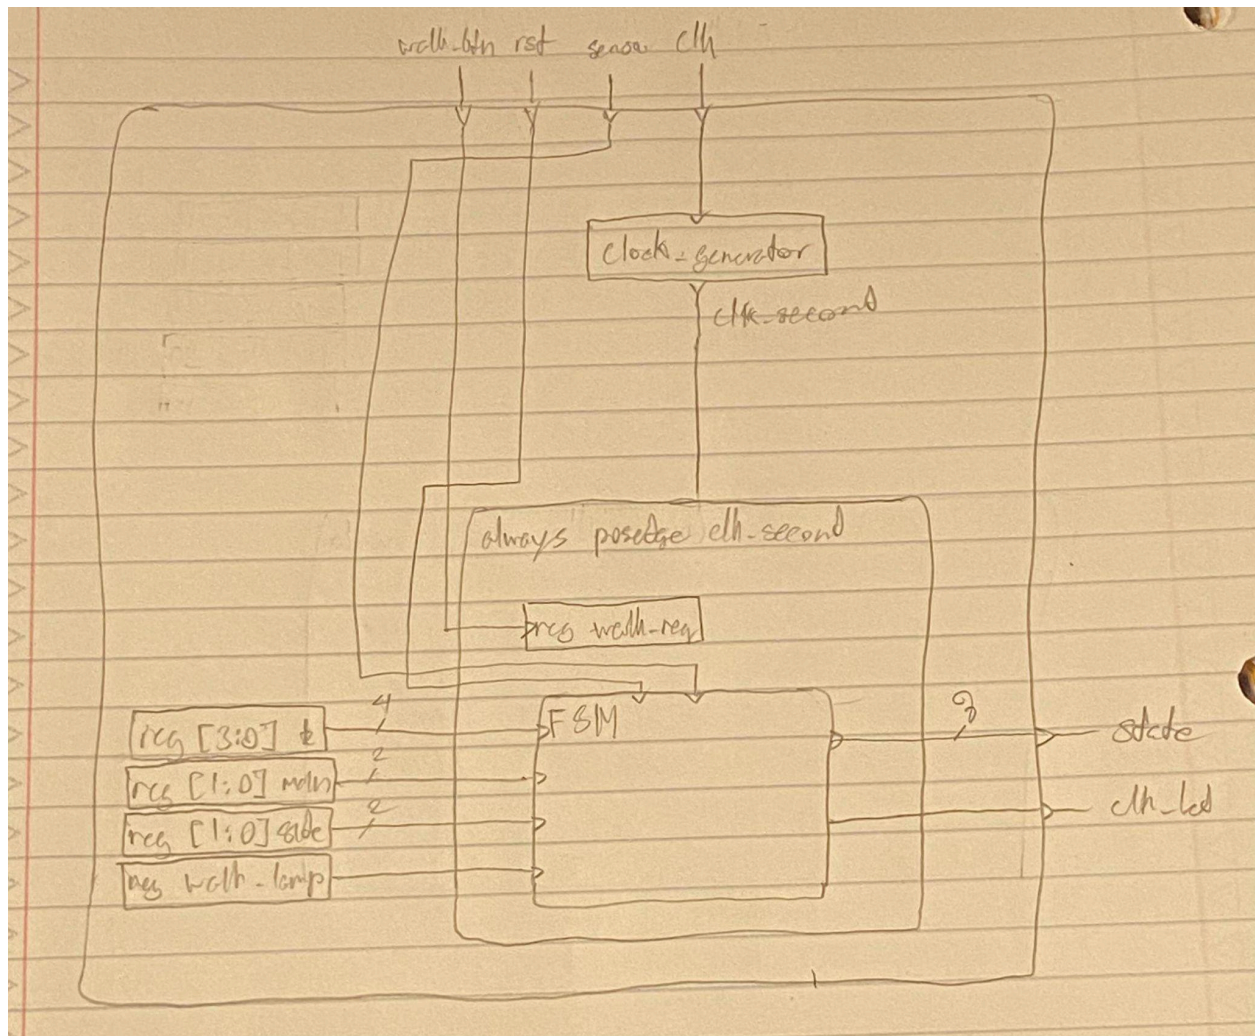 walk-btn rst sensor clk
clock_generator
clk-second
always posedge clk-second
reg walk-req
FSM
reg [3:0] t
4
reg [1:0] main
2
reg [1:0] side
2
reg walk-lamp
state
clk-led